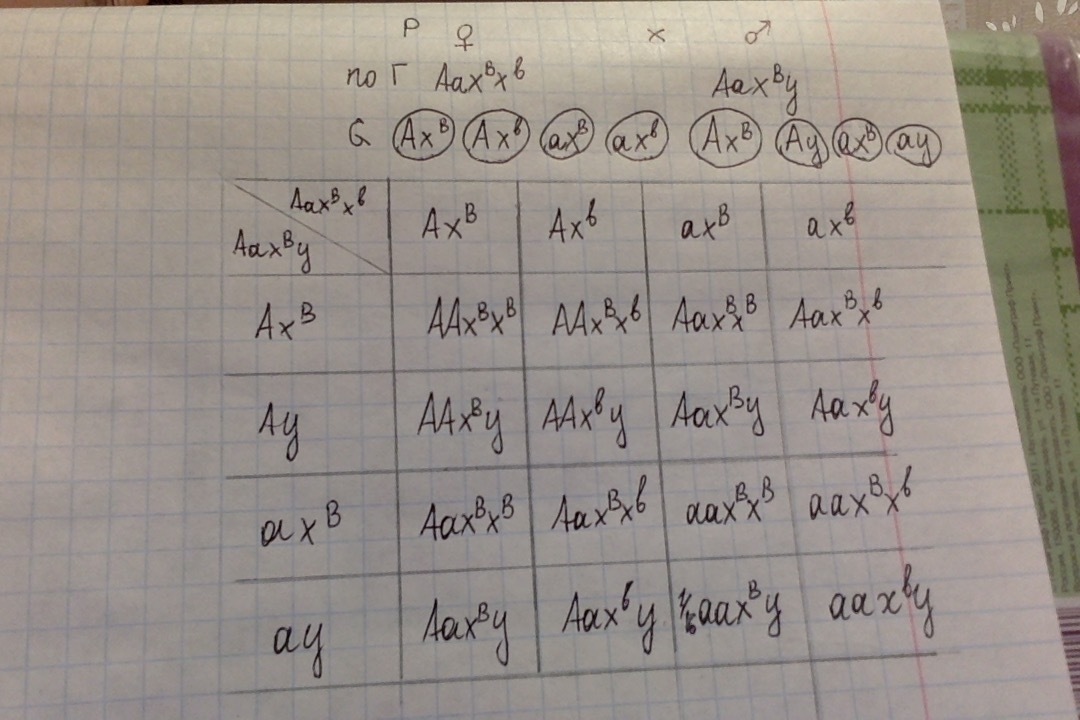 P ♀ × ♂
по Г Aaxᴮxᵇ Aaxᴮy
G Axᴮ Axᵇ axᴮ axᵇ Axᴮ Ay axᴮ ay
Aaxᴮxᵇ
Aaxᴮy
Axᴮ Axᵇ axᴮ axᵇ
Axᴮ AAxᴮxᴮ AAxᴮxᵇ Aaxᴮxᴮ Aaxᴮxᵇ
Ay AAxᴮy AAxᵇy Aaxᴮy Aaxᵇy
axᴮ Aaxᴮxᴮ Aaxᴮxᵇ aaxᴮxᴮ aaxᴮxᵇ
ay Aaxᴮy Aaxᵇy aaxᴮy aaxᵇy